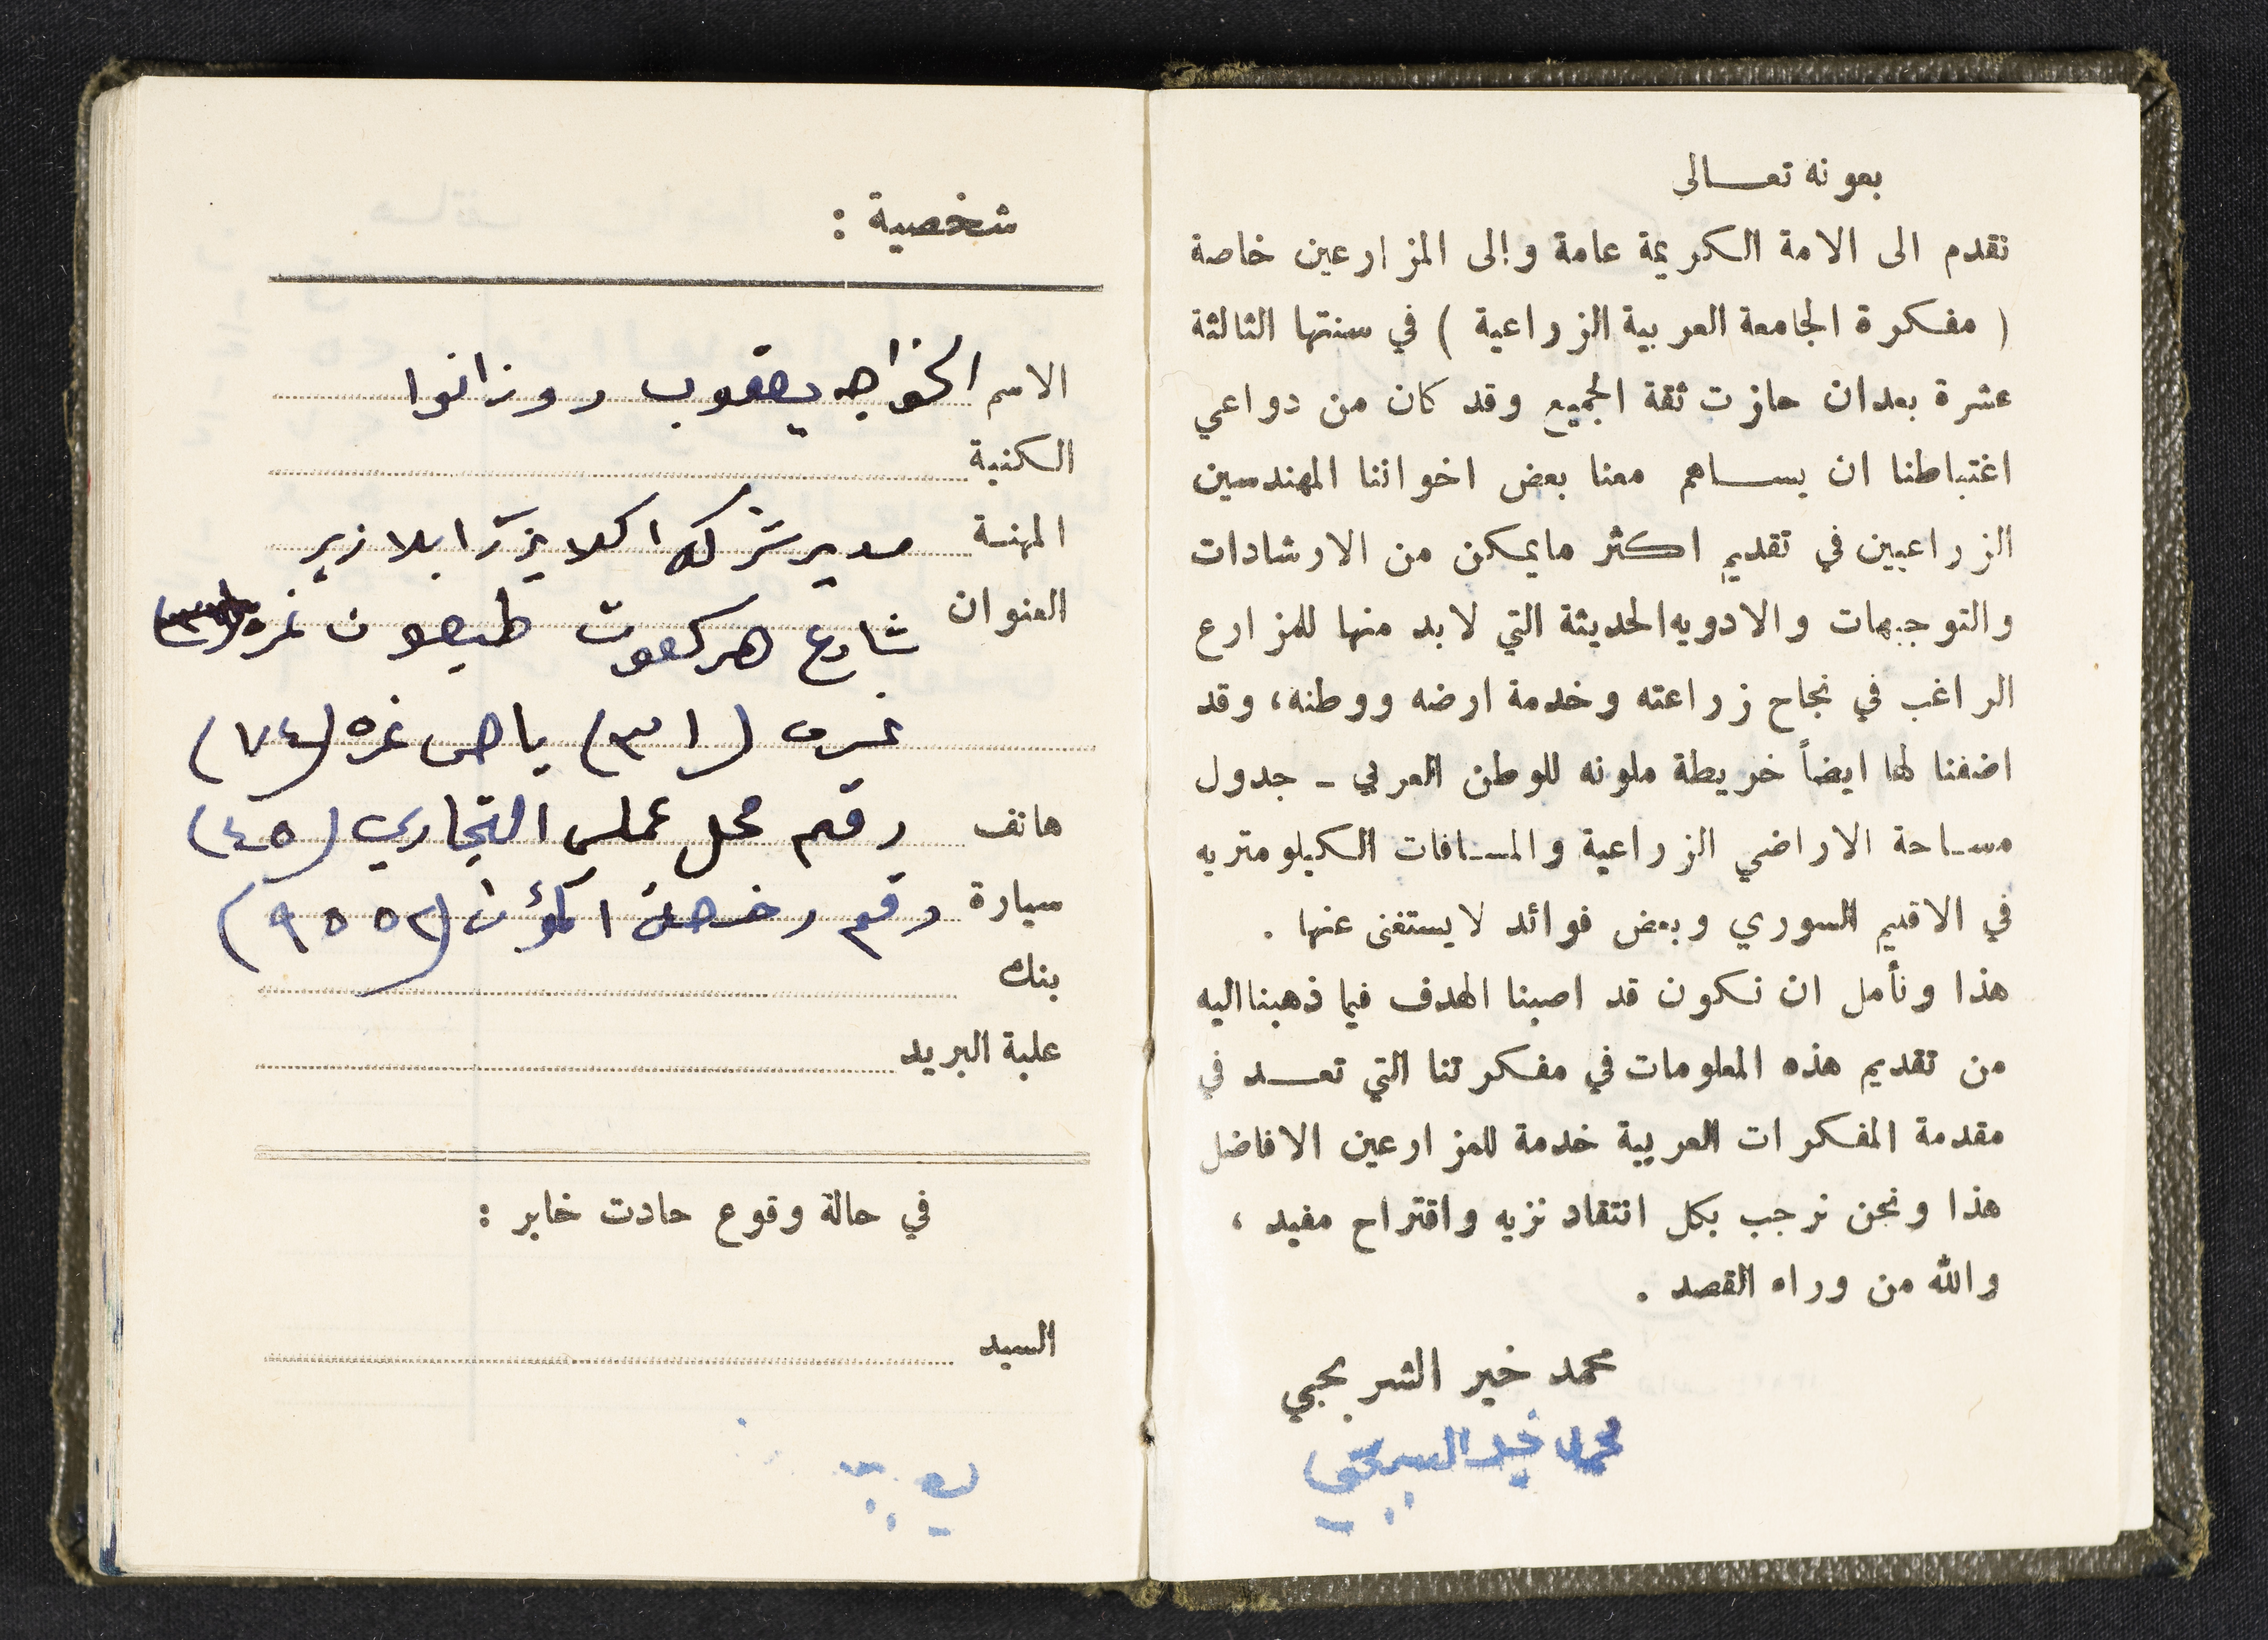 بعونه تعالى
نقدم الى الامة الكريمة عامة وإلى المزارعين خاصة
( مفكرة الجامعة العربية الزراعية ) في سنتها الثالثة
عشرة بعد ان حازت ثقة الجميع وقد كان من دواعي
اغتباطنا ان يساهم معنا بعض اخواننا المهندسين
الزراعيين في تقديم اكثر مايمكن من الارشادات
والتوجيهات والادويه الحديثة التي لابد منها للمزارع
الراغب في نجاح زراعته وخدمة ارضه ووطنه، وقد
اضفنا لها ايضاً خريطة ملونه للوطن العربي - جدول
مساحة الاراضي الزراعية والمسافات الكيلومتريه
في الاقليم السوري وبعض فوائد لايستغنى عنها .
هذا ونأمل ان نكون قد اصبنا الهدف فيما ذهبنا اليه
من تقديم هذه المعلومات في مفكرتنا التي تعد في
مقدمة المفكرات العربية خدمة للمزارعين الافاضل
هذا ونحن نرحب بكل انتقاد نزيه واقتراح مفيد ،
والله من وراء القصد .
محمد خير الشربجي
محمد خير
شخصية :
الاسم الخواجه يعقوب روزانوا
الكنية
المهنة مدير شركة
العنوان شارع هركعوت طبعون نمره
(٣١) باص نمره (٧٤)
هاتف رقم محل عملي التجاري (٤٥)
سيارة رقم رخصة (٩٥٥٢)
بنك
علبة البريد
في حالة وقوع حادث خابر :
السيد